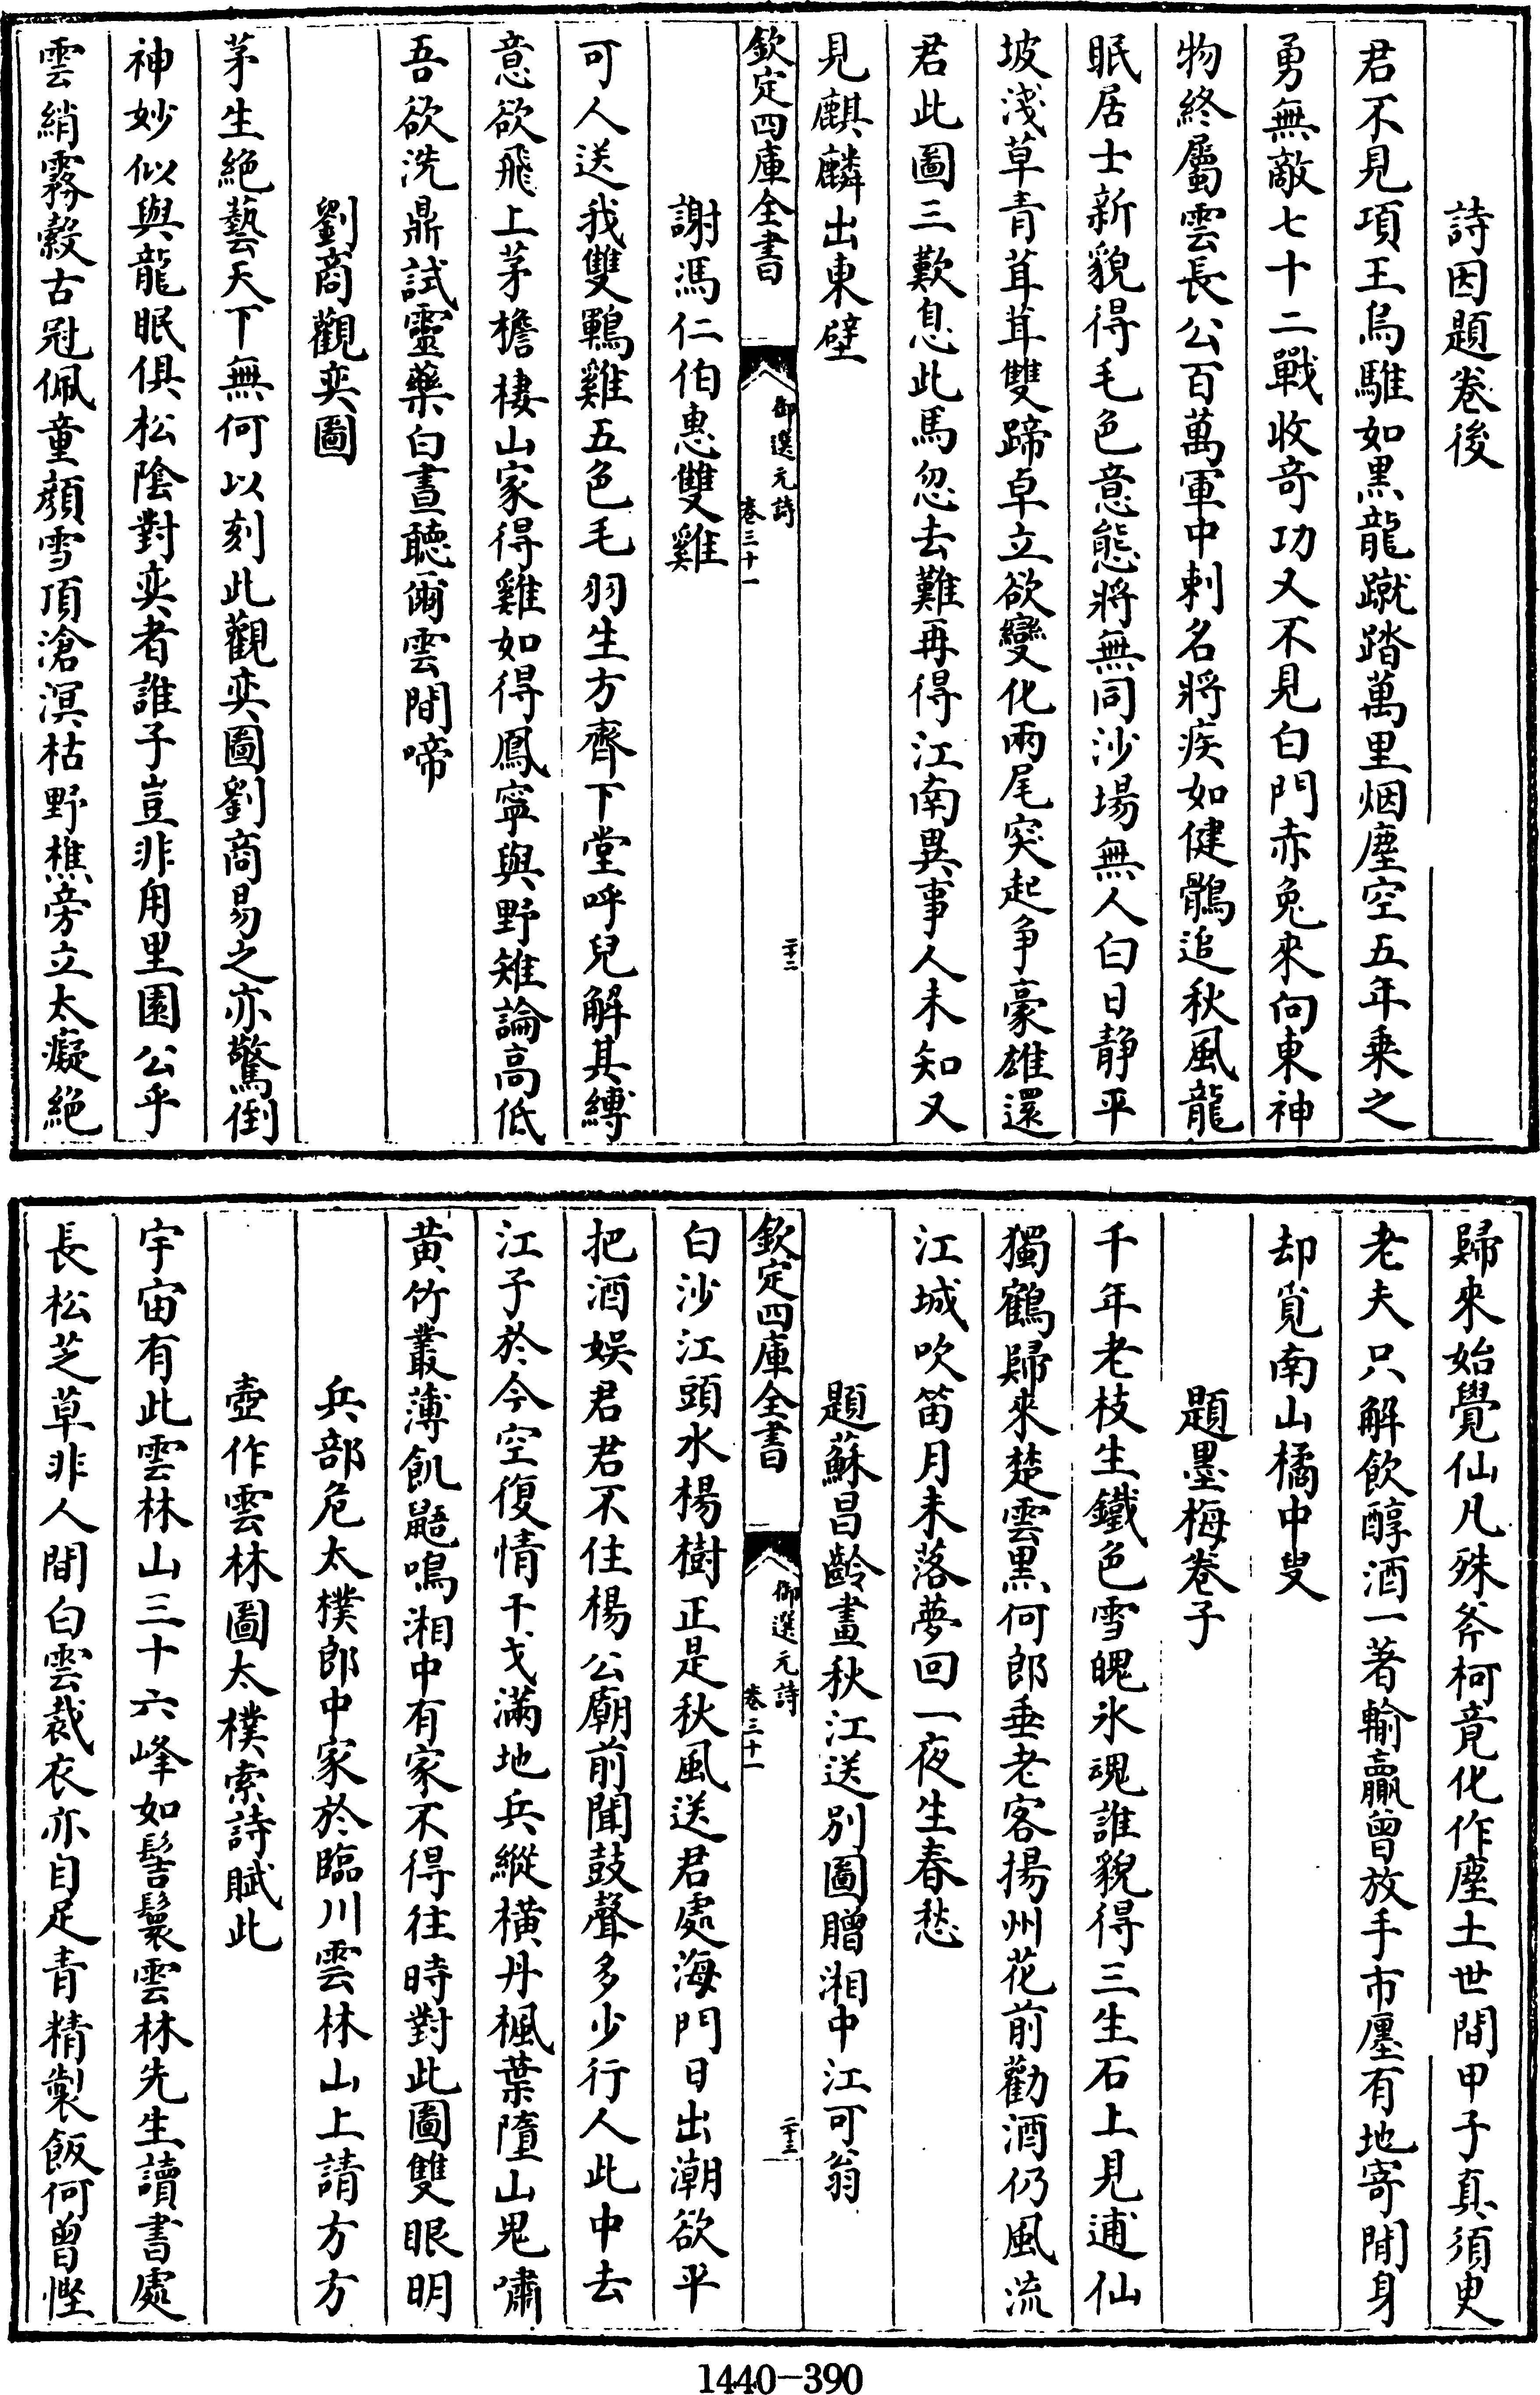 詩因題卷後
君不見項王烏騅如黑龍蹴踏萬里烟塵空五年乗之
勇無敵七十二戰收竒功又不見白門赤兔來向東神
物終屬雲長公百萬軍中刺名將疾如健鶻追秋風龍
眠居士新貌得毛色意態將無同沙場無人白日静平
坡淺草青茸茸雙蹄卓立欲變化兩尾突起爭豪雄還
君此圖三歎息此馬忽去難再得江南異事人未知又
見麒麟出東壁
欽定四庫全書
御選元詩
卷三十一
二十二
謝馮仁伯惠雙雞
可人送我雙鶤雞五色毛羽生方齊下堂呼兒解其縳
意欲飛上茅檐棲山家得雞如得鳳寧與野雉論高低
吾欲洗鼎試靈藥白晝聽爾雲間啼
劉商觀奕圖
茅生絶藝天下無何以刻此觀奕圖劉商易之亦驚倒
神妙似與龍眠俱松陰對奕者誰子豈非甪里園公乎
雲綃霧縠古冠佩童顔雪頂滄溟枯野樵旁立太癡絶
歸來始覺仙凡殊斧柯竟化作塵土世間甲子真須臾
老夫只解飲醇酒一著輸贏曾放手市㕓有地寄閒身
却覓南山橘中叟
題墨梅卷子
千年老枝生鐵色雪魄氷魂誰貌得三生石上見逋仙
獨鶴歸來楚雲黒何郎垂老客揚州花前勸酒仍風流
江城吹笛月未落夢回一夜生春愁
題蘇昌齡畫秋江送別圖贈湘中江可翁
欽定四庫全書
御選元詩
卷三十一
二十三
白沙江頭水楊樹正是秋風送君處海門日出潮欲平
把酒娱君君不住楊公廟前聞鼓聲多少行人此中去
江子於今空復情干戈滿地兵縱横丹楓葉隨山鬼嘯
黄竹叢薄飢鼯鳴湘中有家不得往時對此圖雙眼明
兵部危太樸郎中家於臨川雲林山上請方方
壺作雲林圖太樸索詩賦此
宇宙有此雲林山三十六峰如髻鬟雲林先生讀書處
長松芝草非人間白雲裁衣亦自足青精製飯何曾慳
1440-390